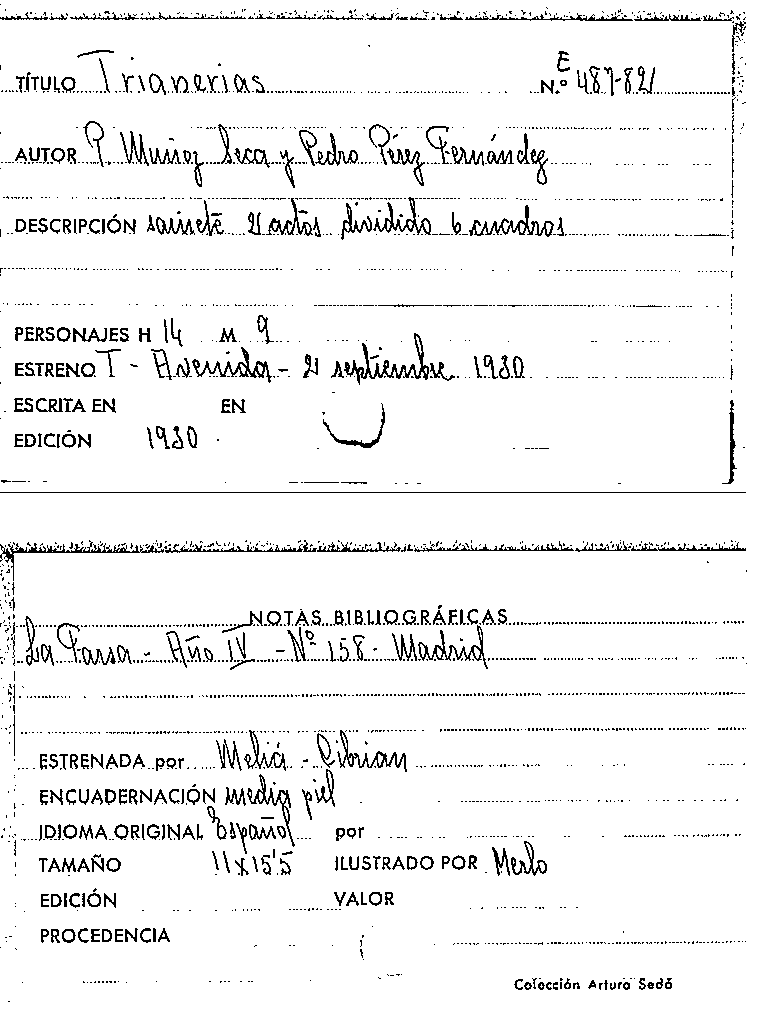 TÍTULO Trianerias E
N.º 487-821
AUTOR P. Muñoz Seca y Pedro Pérez Fernández
DESCRIPCIÓN sainete 2 actos dividido 6 cuadros
PERSONAJES H 14 M 9
ESTRENO T - Avenida - 2 septiembre 1930
ESCRITA EN EN
EDICIÓN 1930
NOTAS BIBLIOGRÁFICAS
La Farsa - Año IV - Nº 158 - Madrid
ESTRENADA por Meliá - Cibrian
ENCUADERNACIÓN media piel
IDIOMA ORIGINAL Español por
TAMAÑO 11x15'5 ILUSTRADO POR Merlo
EDICIÓN VALOR
PROCEDENCIA
Colección Arturo Sedó